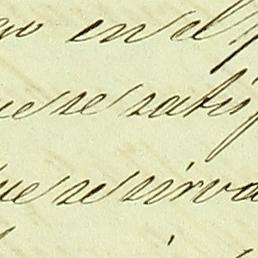 go en el p
ue se satisf
ue se sirva